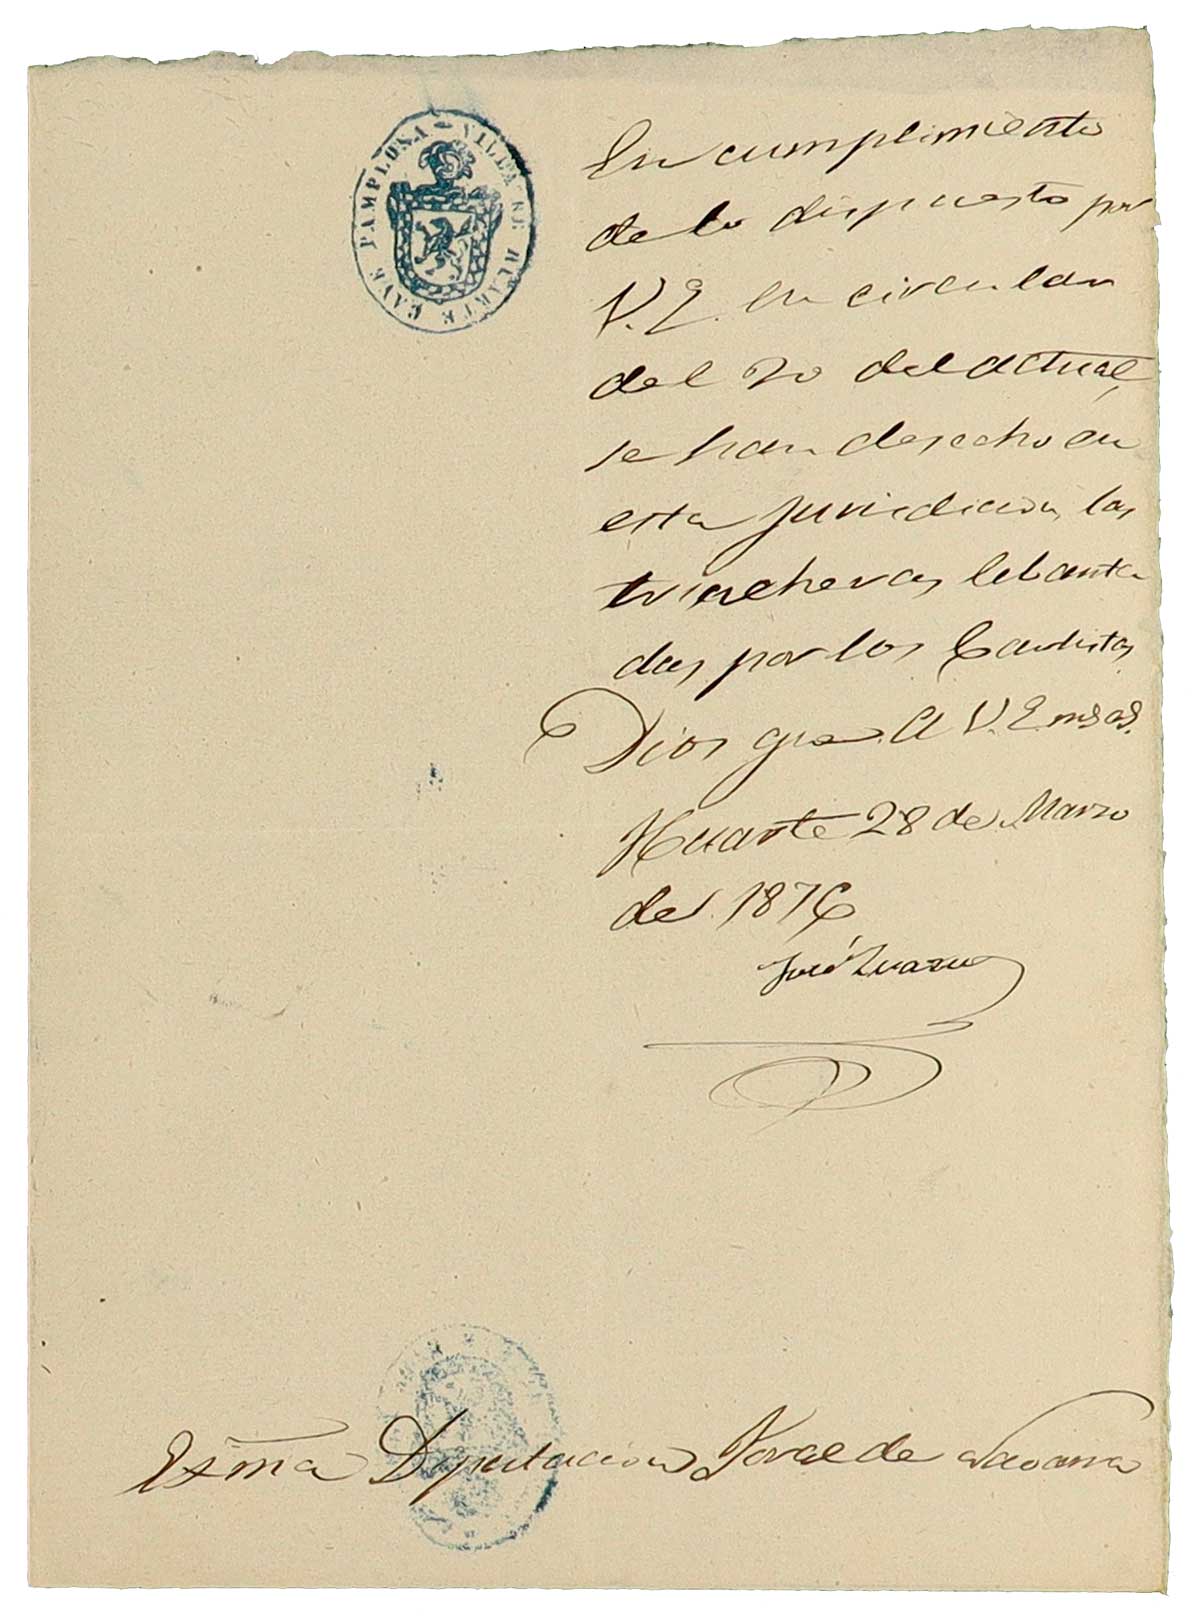 VILLA DE HUARTE CAVE PAMPLONA
En cumplimiento
de lo dispuesto por
V. E. en circular
del 20 del actual,
se han desecho en
esta jurisdicion, las
trincheras, lebanta
das por los Carlistas
Dios gue. A V. E. ms. as.
Huarte 28 de Marzo
de 1876
José
Exma Diputacion Foral de Navarra